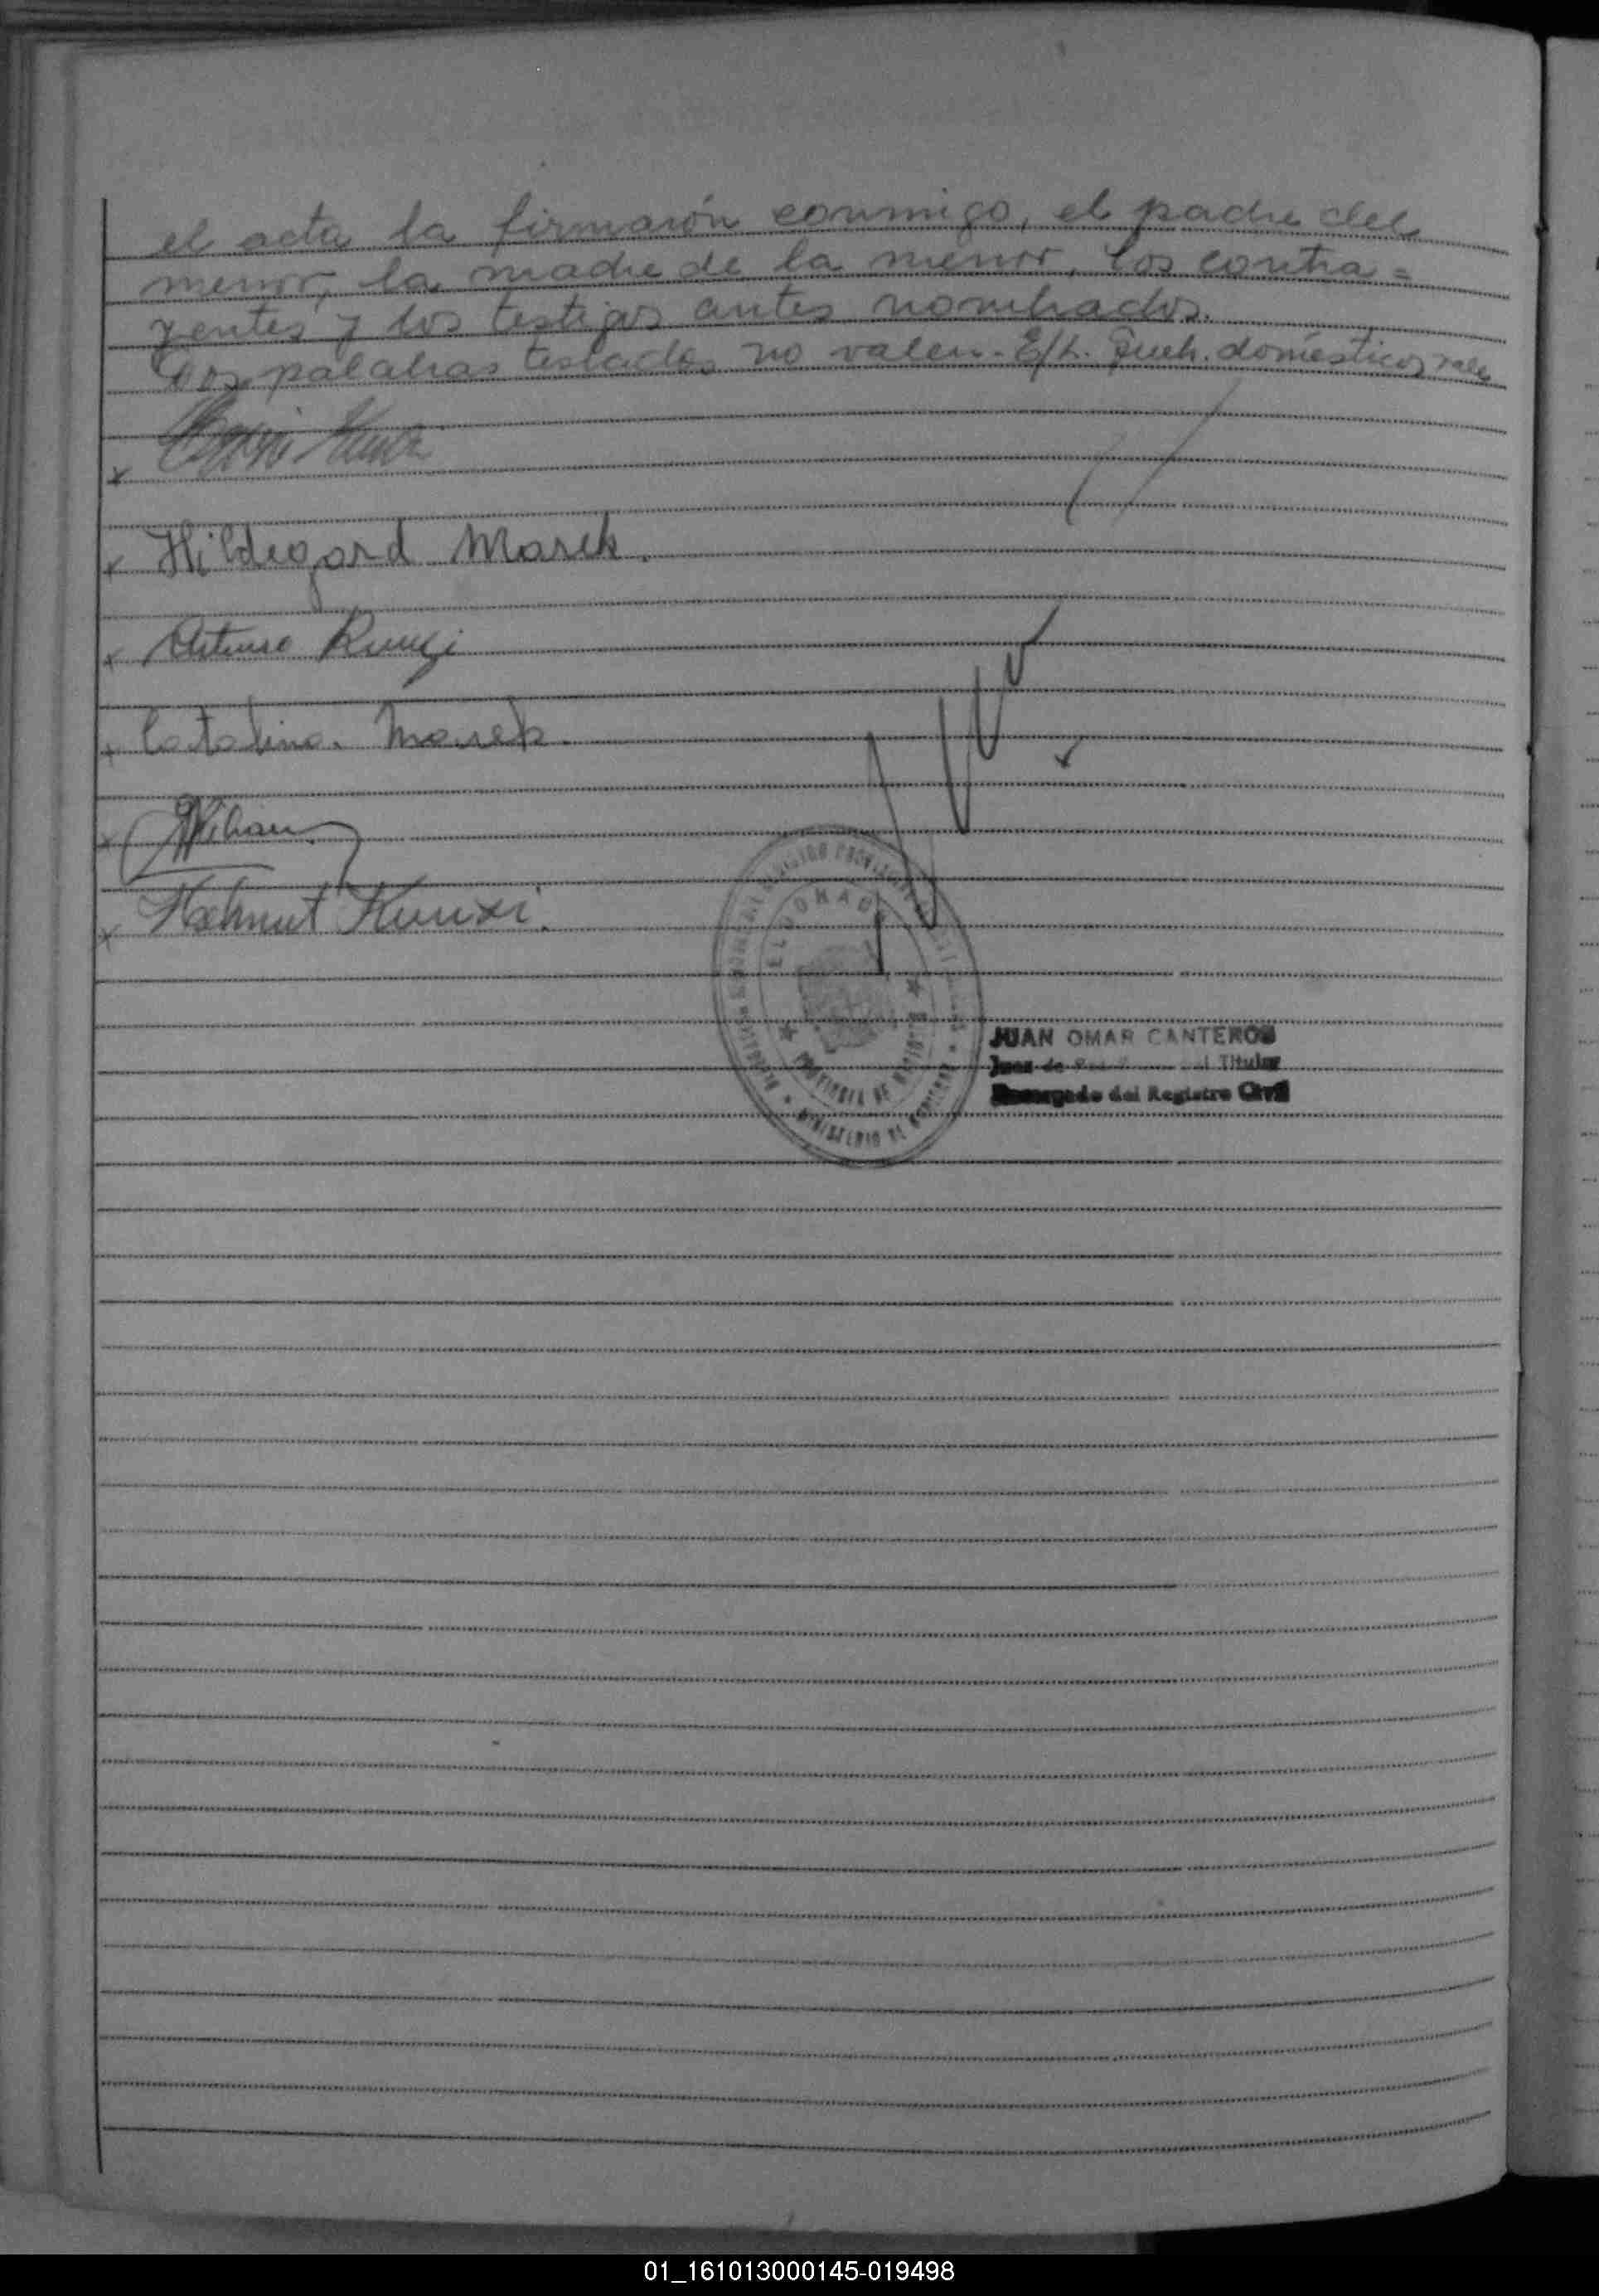 el acta la firmarón conmigo, el padre del
menor, la madre de la menor, los contra=
yentes y los testigos antes nombrados.
Dos palabras testados no valen. E/L. Queh. domésticos vale
x
x Hildegard Marek.
x Arturo Kunzi
x Catalina. Marek.
x
x Helmut Kunzi.
ELDORADO
PROVINCIA DE MISIONES
MINISTERIO DE GOBIERNO
JUAN OMAR CANTEROS
Juez de Paz Titular
Encargado del Registro Civil
01_161013000145-019498